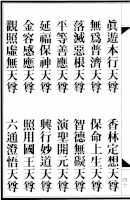 眞遊本行天尊　香林定想天尊
無為普濟天尊　保命上生天尊
落滅惡根天尊　智德無礙天尊
平等善應天尊　演聖開元天尊
延福保神天尊　興行妙道天尊
金容感應天尊　照用國王天尊
觀照虛無天尊　六通澄悟天尊